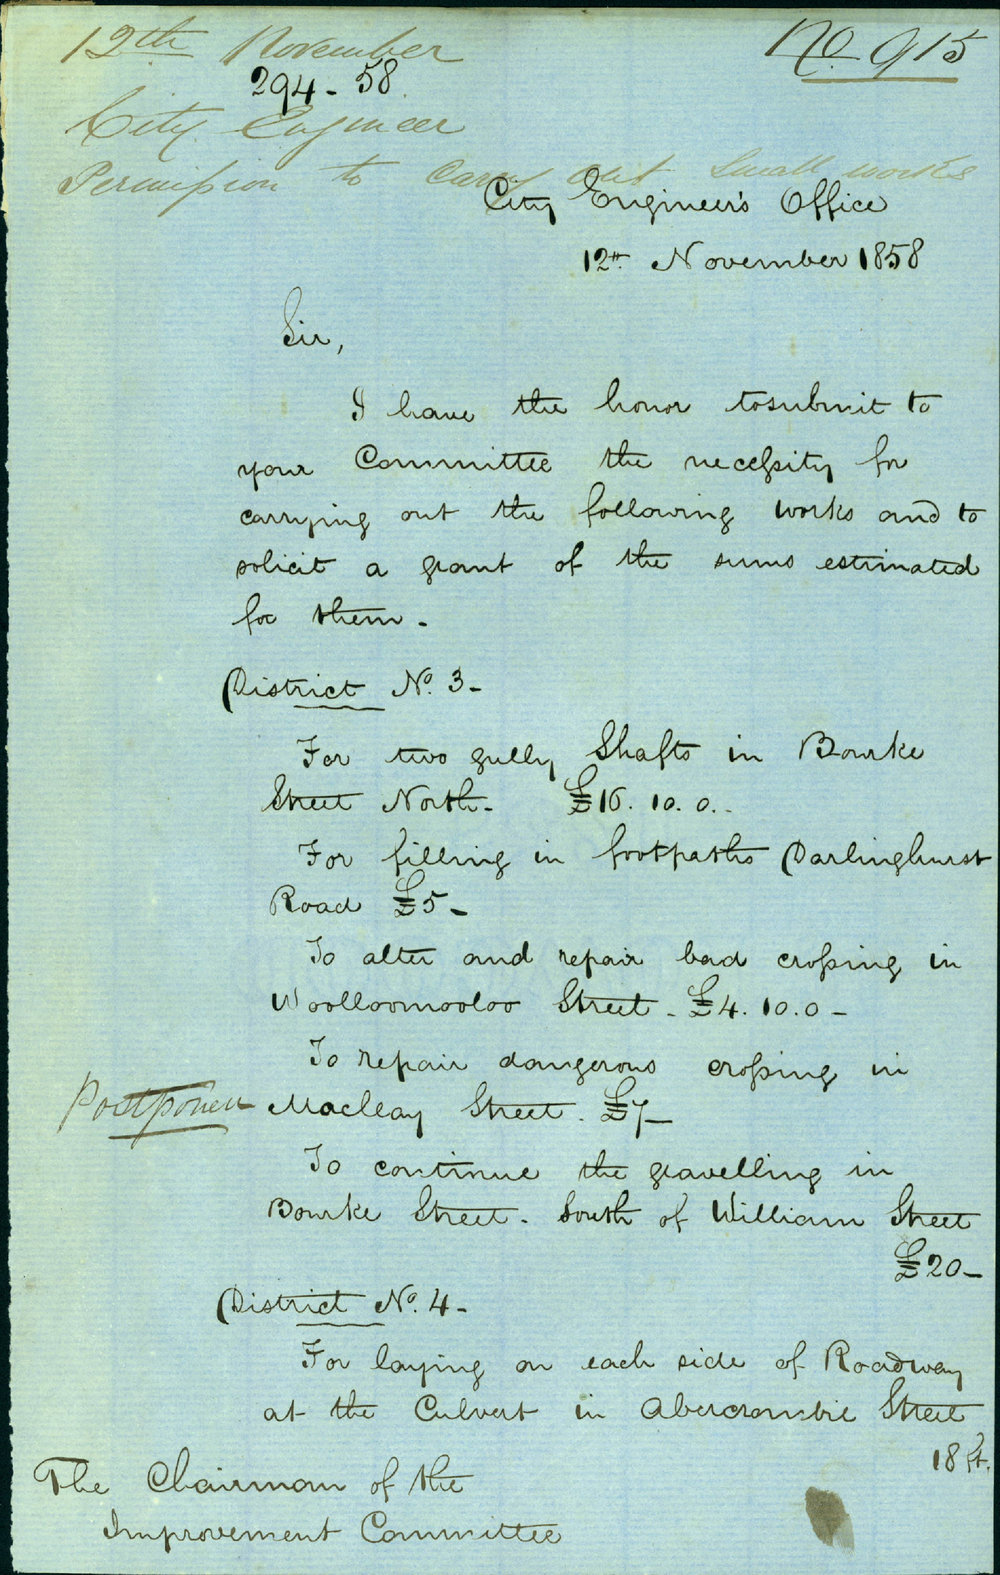 12th November
No. 915
294-58.
City Engineer
Permission to Carry out Small works
City Engineer's Office
12th November 1858
Sir,
I have the honor to submit to
your Committee the necessity for
carrying out the following works and to
solicit a grant of the sums estimated
for them.-
District No. 3-
For two gully Shafts in Bourke
Street North. £16. 10. 0..
For filling in footpaths Darlinghurst
Road £5-
To alter and repair bad crossing in
Woolloomooloo Street. £4. 10. 0-
To repair dangerous crossing in
Postponed
Macleay Street. £7-
To continue the gravelling in
Bourke Street. South of William Street
£20-
District No. 4-
For laying on each side of Roadway
at the Culvert in Abercrombie Street
18 ft.
The Chairman of the
Improvement Committee